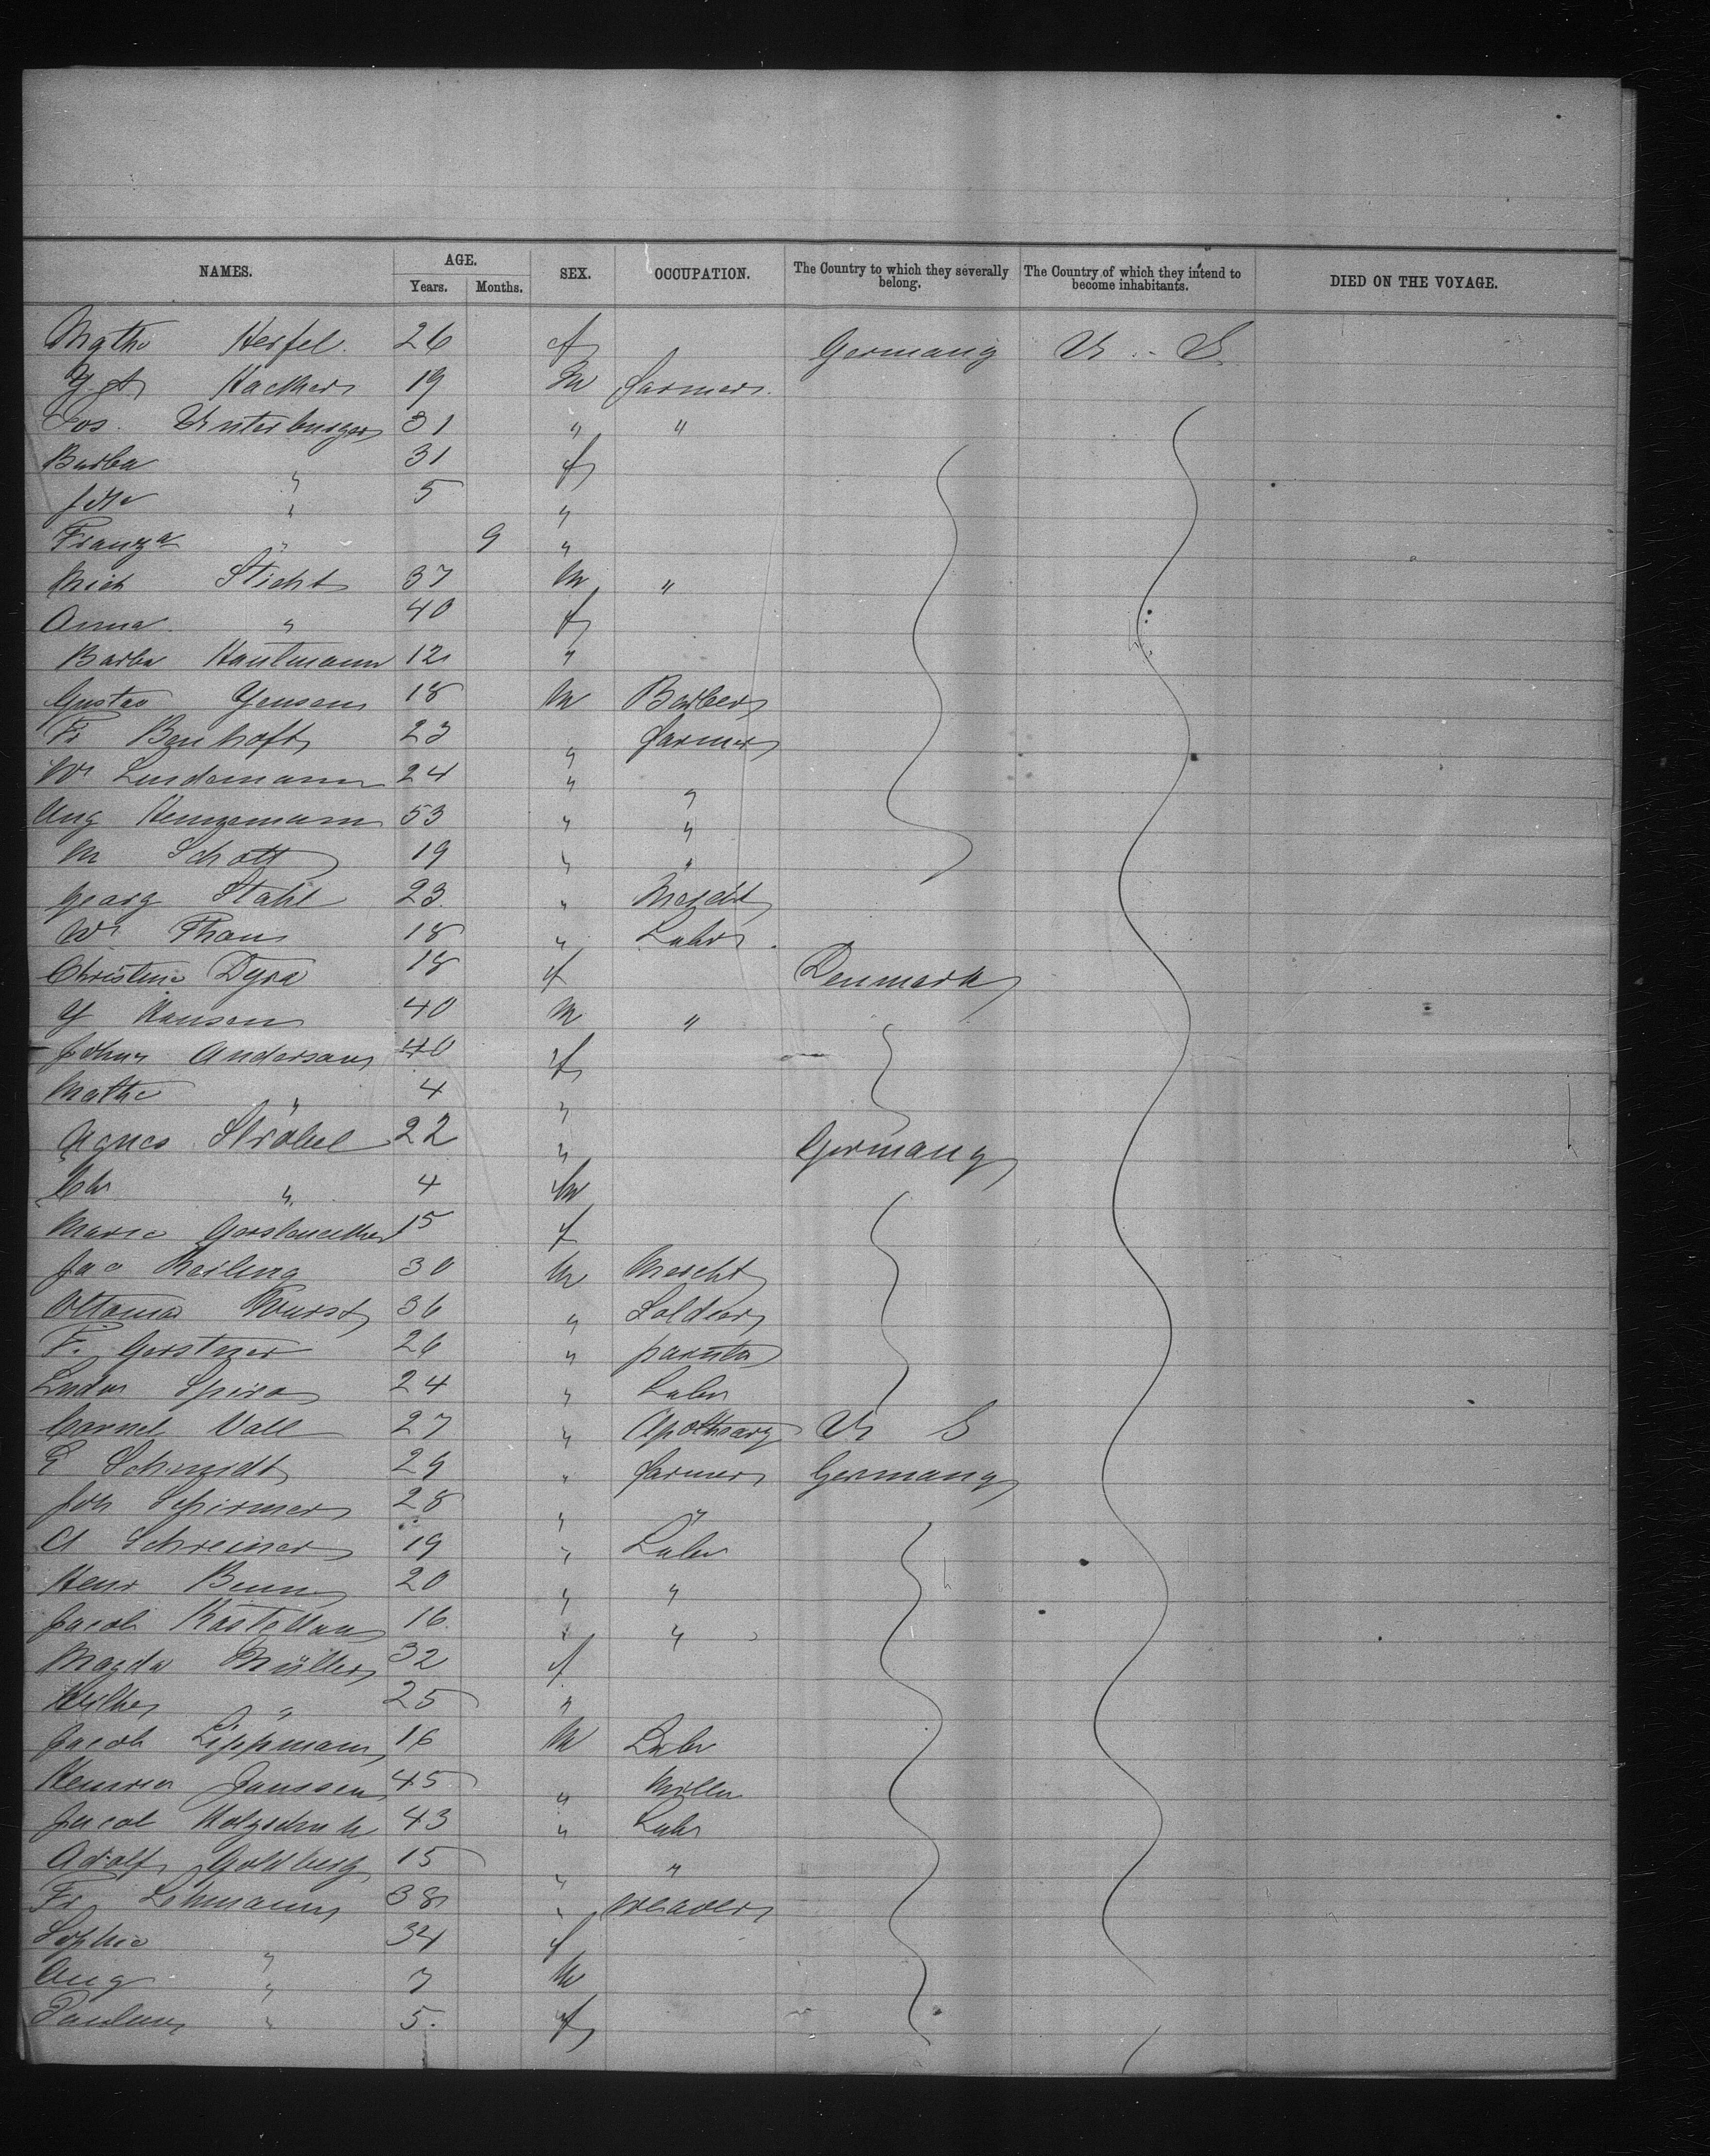 NAMES. AGE. SEX. OCCUPATION. The Country to which they severally belong. The Country of which they intend to become inhabitants. DIED ON THE VOYAGE.
Years. Months.
Mathe Hersel. 26 f Germany U. S.
19 M farmer.
Jos. Unterburger 31 " "
Barba " 31 f
" 5 "
Franza " 9 "
Mich Sticht 37 M "
Anna " 40 f
Barba Hautmann 12 "
Gustav Yensen 18 M Barber
Fr Benhoft 23 " farmer
Wm Lindemann 24 " "
Aug 53 " "
M Schott 19 " "
Georg Stahl 23 " Mercht
Wm Thom 18 " Labr.
Christine Dyra 18 f Denmark
Y Hansen 40 M "
Andersen 40 f
Mathe " 4 "
Agnes Ströbel 22 " Germany
Chr " 4 M
Marie 15 f
Jac Reiling 30 M Mercht
Ottomar Wurst 36 " Soldier
F. Gerstner 26 " painter
Ludw Spiro 24 " Labr
Cornel Vall 27 " Apothcary U S
E Schmidt 29 " farmer Germany
Joh Schirmer 28 " "
A Schreiner 19 " Labr
Henr 20 " "
Jacob Kastellan 16 " "
Magda Müller 32 f
Wilhe " 25 "
Jacob Lippmann 16 M Labr
Janssen 45 " Miller
Jacob Holzschuh 43 " Labr
Adolf Goldberg 15 " "
Fr Lehmann 38 " weaver
Sophie " 34 f
Aug " 7 M
Pauline " 5. f